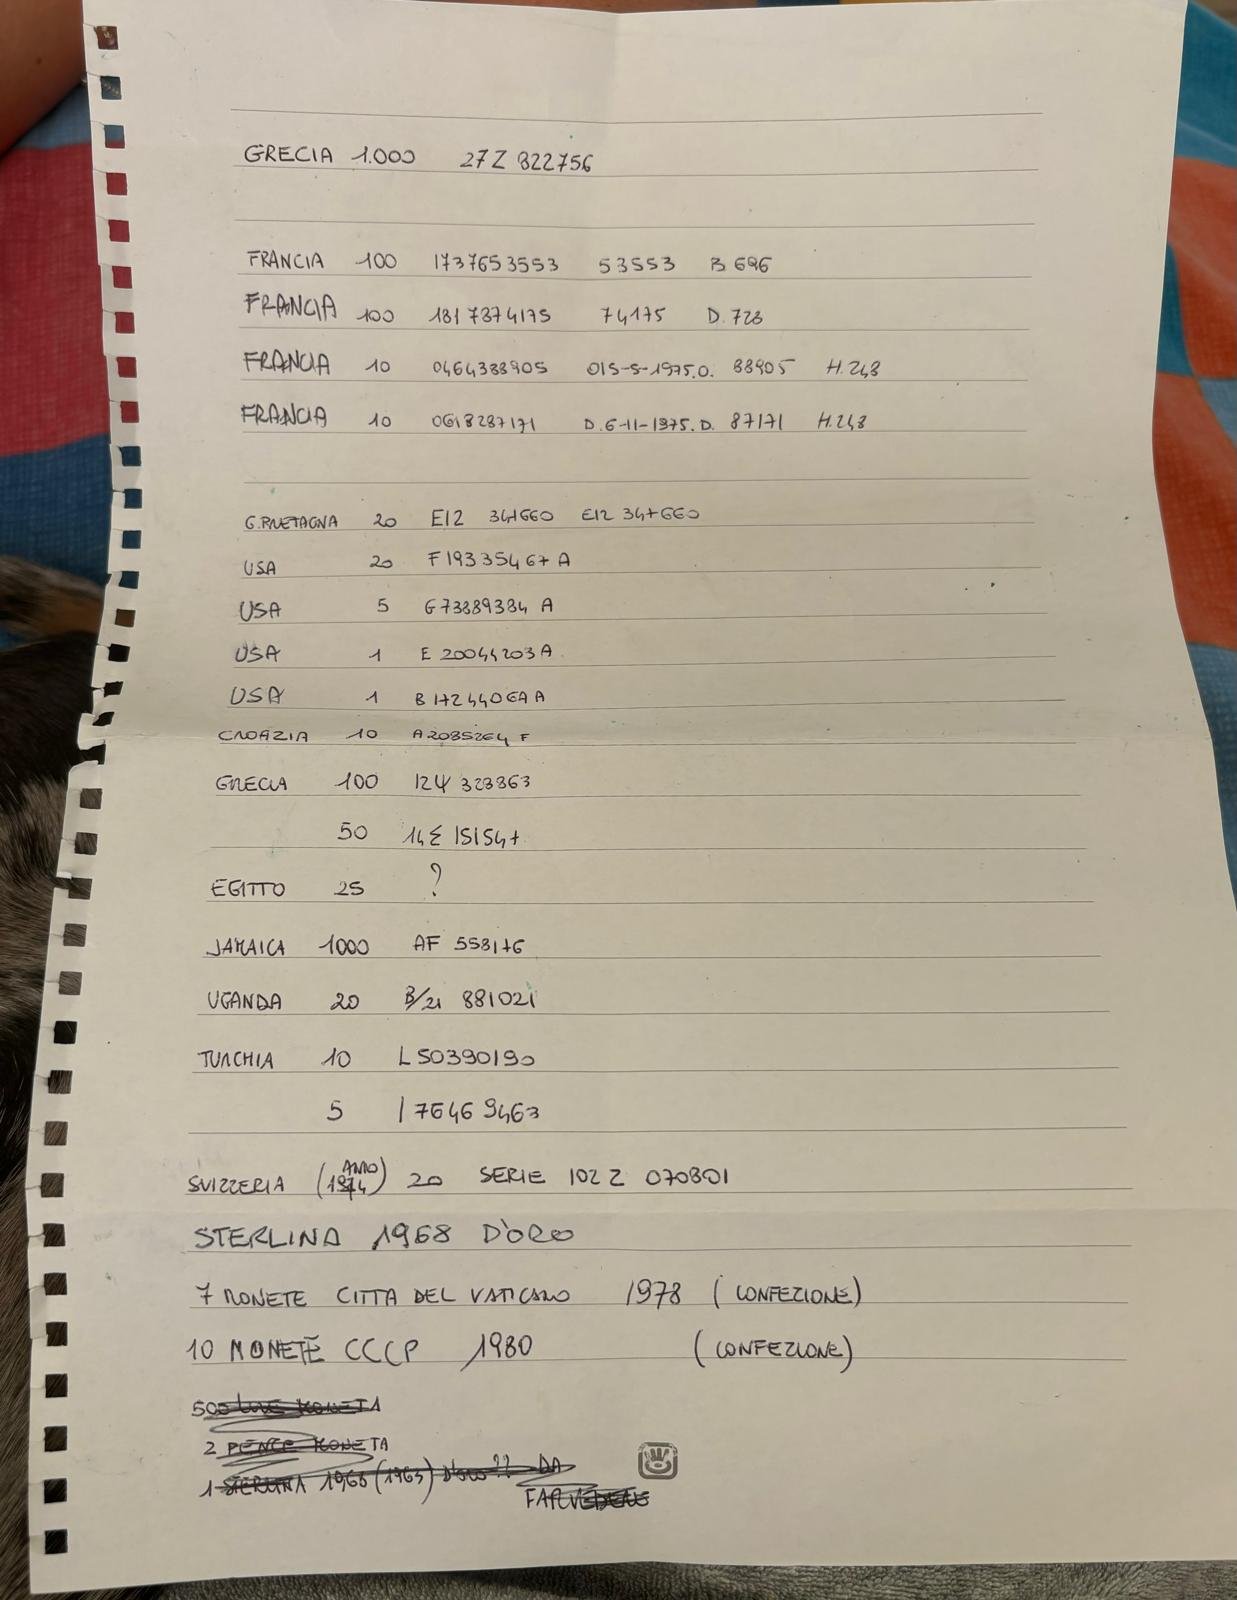 GRECIA 1.000 27Z 822756
FRANCIA 100 1737653553 53553 B 696
FRANCIA 100 1817874175 74175 D.728
FRANCIA 10 0464388905 O15-5-1975.O. 88905 H.248
FRANCIA 10 0618287171 D.6-11-1975.D. 87171 H.248
G.BRETAGNA 20 E12 347660 E12 347660
USA 20 F19335467A
USA 5 G73889384 A
USA 1 E 20044203A
USA 1 B 1724406AA
CROAZIA 10 A2085264 F
GRECIA 100 12Ψ 323863
50 14Σ 151547
EGITTO 25 ?
JAMAICA 1000 AF 558176
UGANDA 20 B/21 881021
TURCHIA 10 L50390190
5 I 76469463
SVIZZERIA (ANNO 1974) 20 SERIE 102 Z 070801
STERLINA 1968 D'ORO
7 MONETE CITTA DEL VATICANO 1978 (CONFEZIONE)
10 MONETE CCCP 1980 (CONFEZIONE)
500 LIRE MONETA
2 PENCE MONETA
1 STERLINA D'ORO?? DA
FAR VEDERE